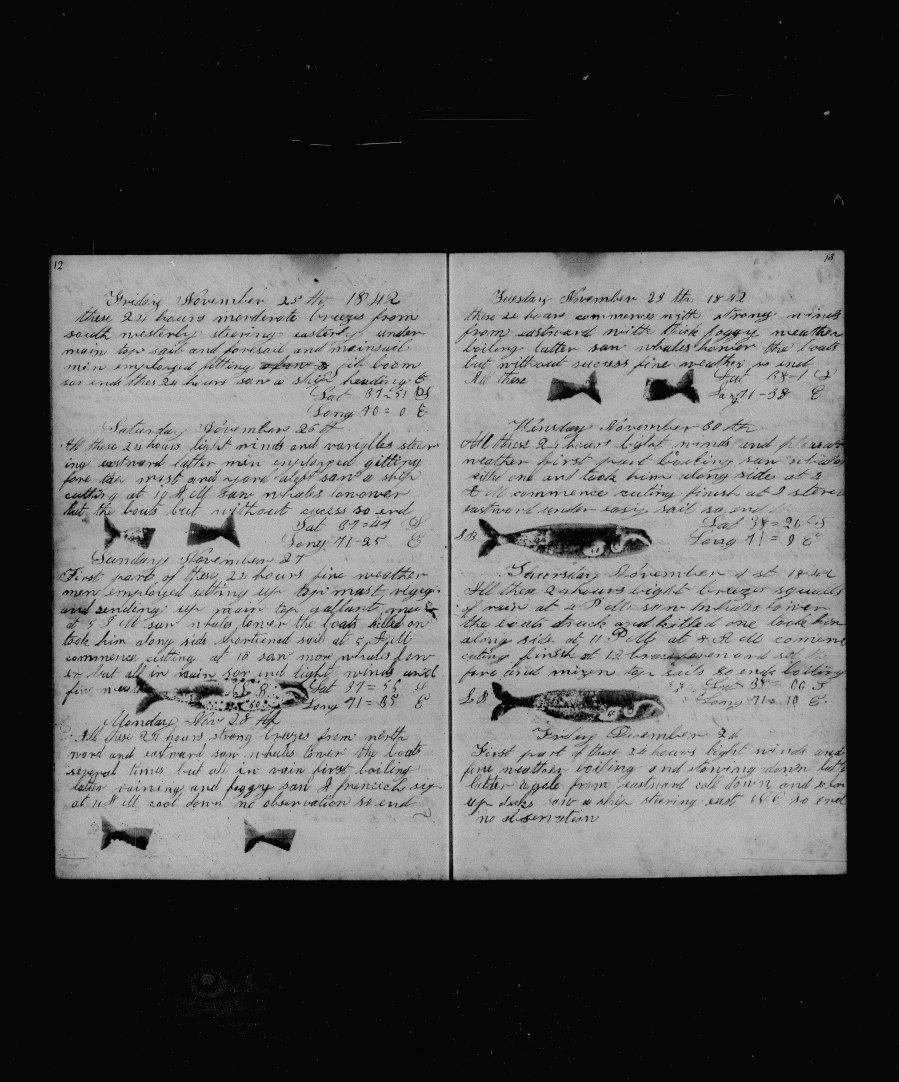 12
Friday November 25th 1842
these 24 hours morderate breezes from
south westerly steering easterly under
main top sail and foresail and mainsail
men employed fitting jib boom
so ends thes 24 hours saw a ship heading E
Lat 37=51 S
Long 70=0 E
Saturday November 26th
All these 24 hours light winds and steer
ing eastward latter men employed gitting
fore top mast and yard aloft saw a ship
cutting at 10 A M saw whales
but the boats but without so end
Lat 37=47 S
Long 71-25 E
Sunday November 27
First part of these 24 hours fine weather
men employed setting up top mast riging
and sending up main top gallant
at 5 P M saw whales lower the boats killed on
took him along side shortened sail at 5 A M
commence cutting at 10 saw mor whales low
er but all in vain so end light winds and
fine
Lat 37=55 S
Long 71=35 E
Monday Nov 28th
All these 24 hours strong brezes from north
ward and eastward saw whales lower the boats
several times but all in vain first boiling
latter raining and foggy saw A
at A M cool down no observation so end
13
Tuesday November 29 th 1842
these 24 hours commences with strong winds
from eastward with thick foggy weather
boiling latter saw whales the boats
but without success fine weather so end
All these
Lat S
Long 71-58 E
November 30th
All these 24 hours light winds and
weather first part boiling saw
one and took him along side at
A M commence cutting finish at 9
eastward under easy sail so end
S B
Lat 38=20 S
Long 71=9 E
Thursday November 1st
All these 24 hours light brezes squalls
of rain at 4 P M saw whales lower
the boats struck and killed one took him
along side at 11 P M at 8 A M comenc
cuting finish at 12 and set
fore and mizen top sails so ends boiling
L B
Long 71=10 E
Friday December 2d
First part of these 24 hours light winds and
fine weather boiling and stowing down
from eastward cool down and
up decks saw a ship stering east so end
no observation